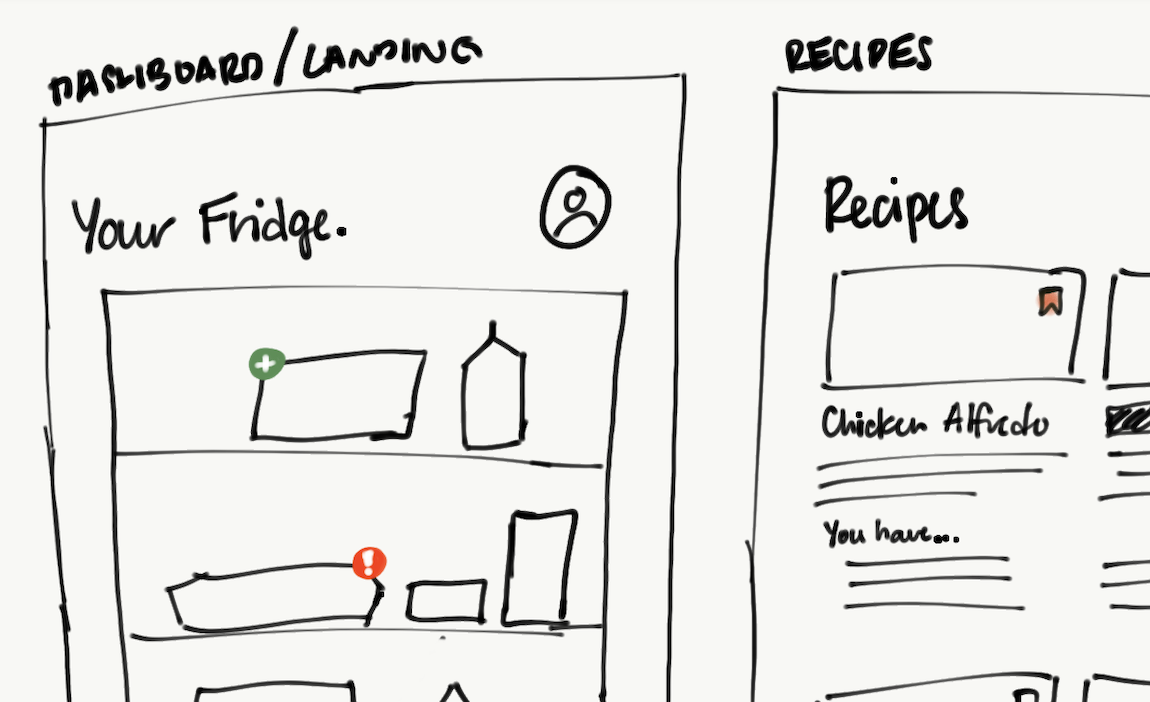 DASHBOARD/LANDING
Your Fridge.
RECIPES
Recipes
Chicken Alfredo
You have...